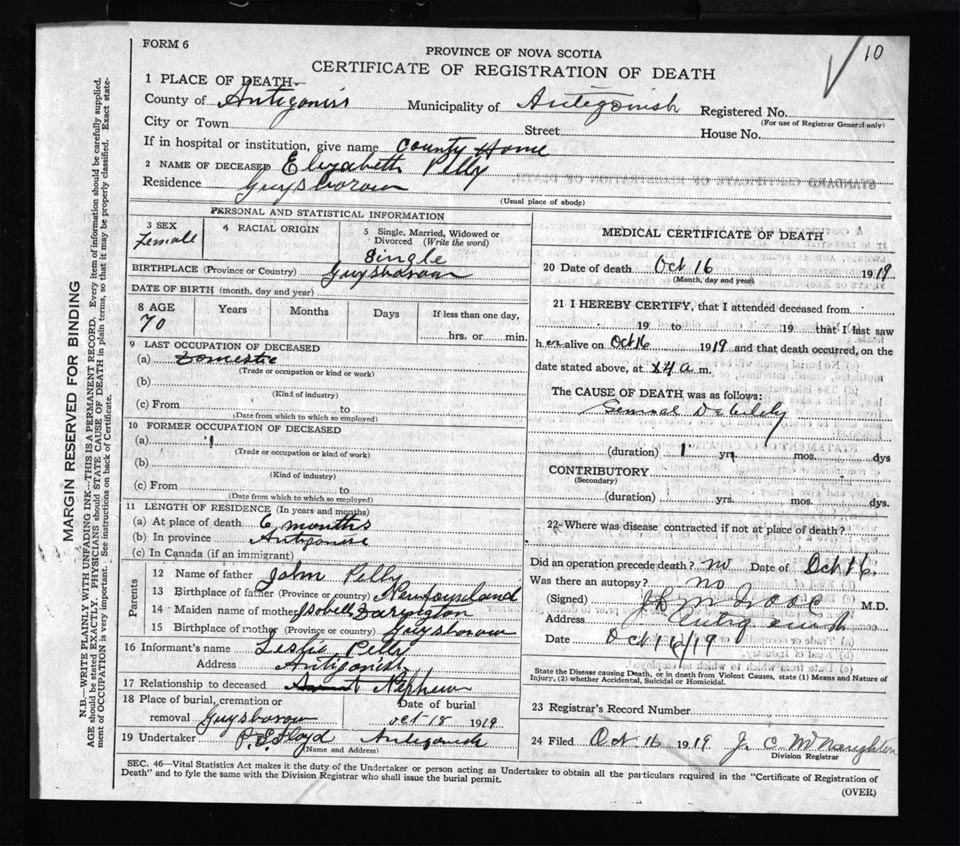 10
FORM 6
PROVINCE OF NOVA SCOTIA
CERTIFICATE OF REGISTRATION OF DEATH
1 PLACE OF DEATH
County of Antigonish Municipality of Antigonish Registered No.
(For use of Registrar General only)
City or Town Street House No.
If in hospital or institution, give name County Home
2 NAME OF DECEASED Elizabeth Pelly
Residence Guysborow
(Usual place of abode)
PERSONAL AND STATISTICAL INFORMATION
3 SEX Female
4 RACIAL ORIGIN
5 Single, Married, Widowed or Divorced (Write the word)
Single
BIRTHPLACE (Province or Country) Guysborow
DATE OF BIRTH (month, day and year)
8 AGE Years Months Days If less than one day,
70 hrs. or min.
9 LAST OCCUPATION OF DECEASED
(a) Domestic
(Trade or occupation or kind or work)
(b)
(Kind of industry)
(c) From to
(Date from which to which so employed)
10 FORMER OCCUPATION OF DECEASED
(a) "
(Trade or occupation or kind of work)
(b)
(Kind of industry)
(c) From to
(Date from which to which so employed)
11 LENGTH OF RESIDENCE (In years and months)
(a) At place of death 6 months
(b) In province Antigonish
(c) In Canada (if an immigrant)
Parents
12 Name of father John Pelly
13 Birthplace of father (Province or country) Newfoundland
14 Maiden name of mother Isobell Darington
15 Birthplace of mother (Province or country) Guysborow
16 Informant's name Leslie Pelly
Address Antigonish
17 Relationship to deceased Aunt Nephew
18 Place of burial, cremation or removal Guysborow
Date of burial
Oct-18 1919
19 Undertaker P.S. Floyd Antigonish
(Name and Address)
MEDICAL CERTIFICATE OF DEATH
20 Date of death Oct 16 1919
(Month, day and year)
21 I HEREBY CERTIFY, that I attended deceased from
19 to 19 that I last saw
h er alive on Oct 16 1919 and that death occurred, on the
date stated above, at 4 a m.
The CAUSE OF DEATH was as follows:
Senile Debility
(duration) 1 yrs. mos. dys
CONTRIBUTORY
(Secondary)
(duration) yrs. mos. dys.
22 Where was disease contracted if not at place of death?
Did an operation precede death? no Date of Oct 16.
Was there an autopsy? no
(Signed) M.D.
Address Antigonish
Date Oct 16/19
State the Disease causing Death, or in death from Violent Causes, state (1) Means and Nature of
Injury, (2) whether Accidental, Suicidal or Homicidal.
23 Registrar's Record Number
24 Filed Oct 16 1919 J. C. McNaughton
Division Registrar
SEC. 46—Vital Statistics Act makes it the duty of the Undertaker or person acting as Undertaker to obtain all the particulars required in the "Certificate of Registration of
Death" and to fyle the same with the Division Registrar who shall issue the burial permit.
(OVER)
MARGIN RESERVED FOR BINDING
N.B.—WRITE PLAINLY WITH UNFADING INK—THIS IS A PERMANENT RECORD. Every item of information should be carefully supplied.
AGE should be stated EXACTLY. PHYSICIANS should STATE CAUSE OF DEATH in plain terms, so that it may be properly classified. Exact state-
ment of OCCUPATION is very important. See instructions on back of Certificate.